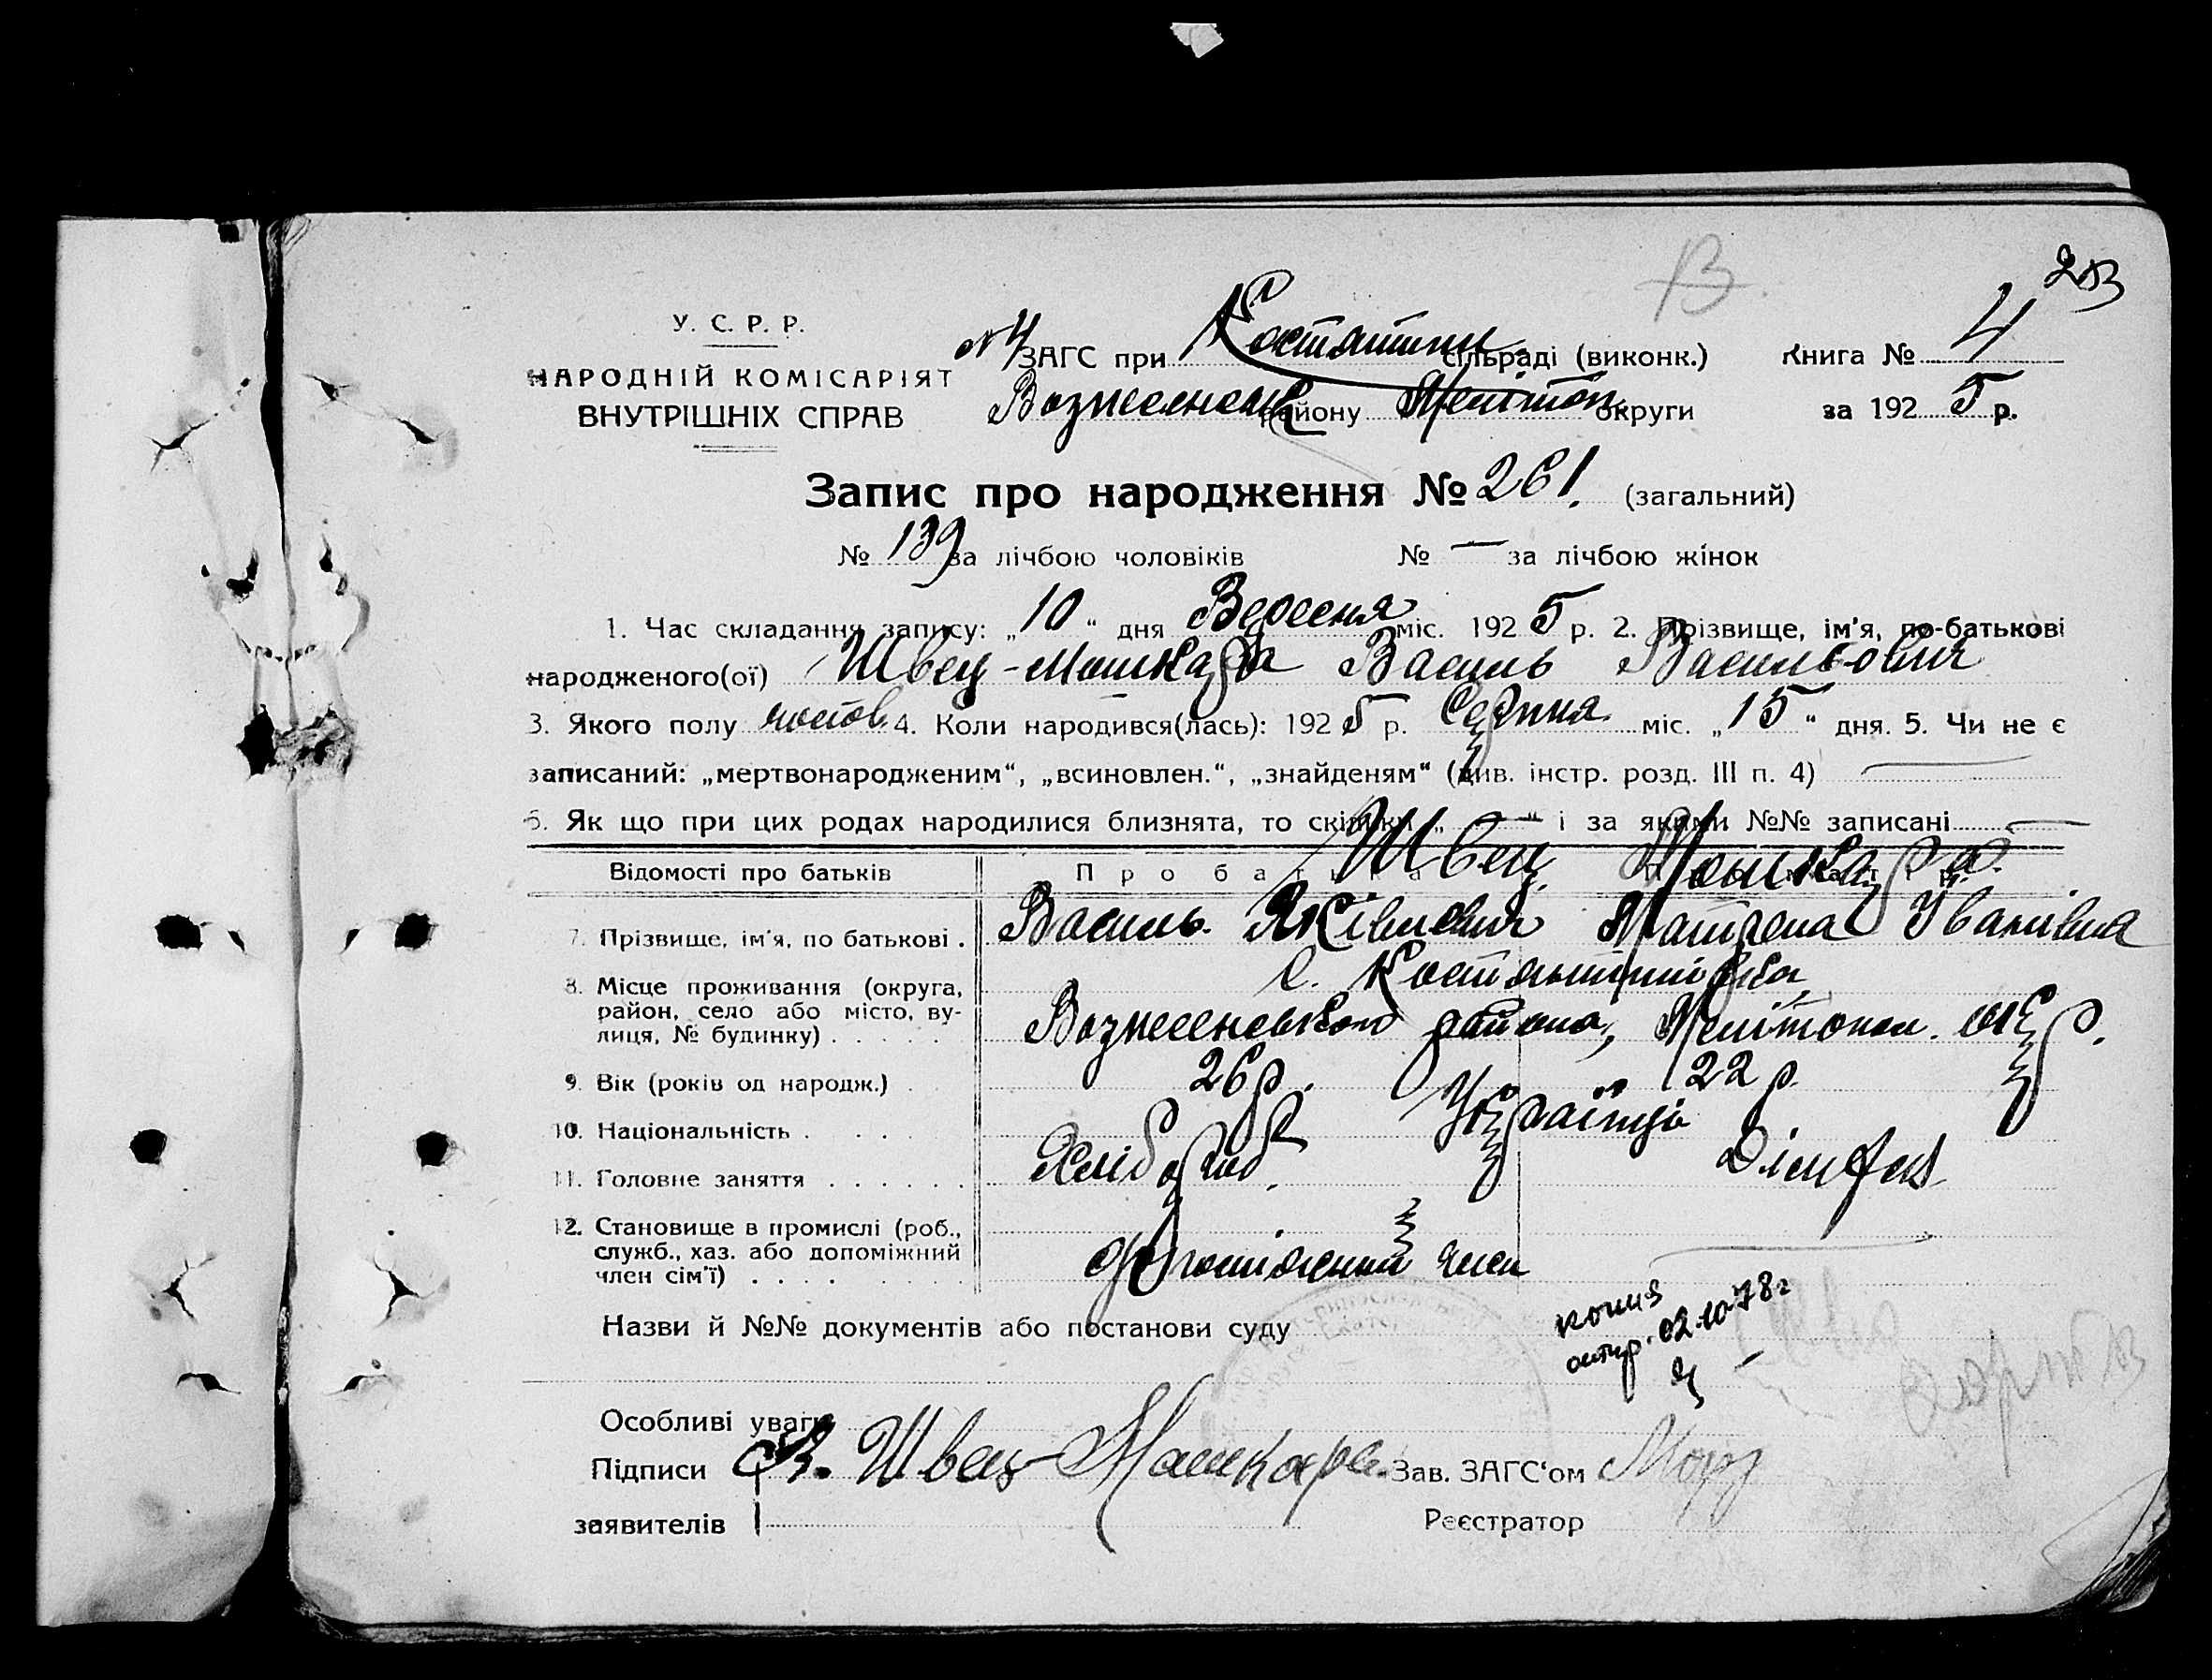 253
У. С. Р. Р.
НАРОДНІЙ КОМІСАРІЯТ
ВНУТРІШНІХ СПРАВ
№ 4 ЗАГС при Костятин. сільраді (виконк.) Книга № 4
Вознесенськ району Мелітоп. округи за 1925 р.
Запис про народження № 261. (загальний)
№ 139 за лічбою чоловіків № — за лічбою жінок
1. Час складання запису: „10“ дня Вересня міс. 1925 р. 2. Прізвище, ім'я, по-батькові
народженого(ої) Швец-Машкара Василь Васильович
3. Якого полу чолов. 4. Коли народився(лась): 1925 р. Серпня міс. „15“ дня. 5. Чи не є
записаний: „мертвонародженим“, „всиновлен.“, „знайденям“ (див. інстр. розд. III п. 4) —
6. Як що при цих родах народилися близнята, то скільки „—“ і за якими №№ записані —
Відомості про батьків Про батька
Швец Мошкара.
7. Прізвище, ім'я, по батькові . Василь Яківлович Матрена Іванівна
8. Місце проживання (округа, район, село або місто, вулиця, № будинку) . . . . . с. Костянтинівка
Вознесенського района, Мелітопол. окр.
9. Вік (років од народж.) . 26 р. 22 р.
10. Національність . . . . Українці
11. Головне заняття . . . . . . Хлібороб.
12. Становище в промислі (роб.,
служб., хаз. або допоміжний
член сім'ї) . . . . . . . . —
Назви й №№ документів або постанови суду
копия
отпр. 02.10.78 г
Особливі уваги
Підписи В. Швец-Машкара Зав. ЗАГС'ом
заявителів Реєстратор